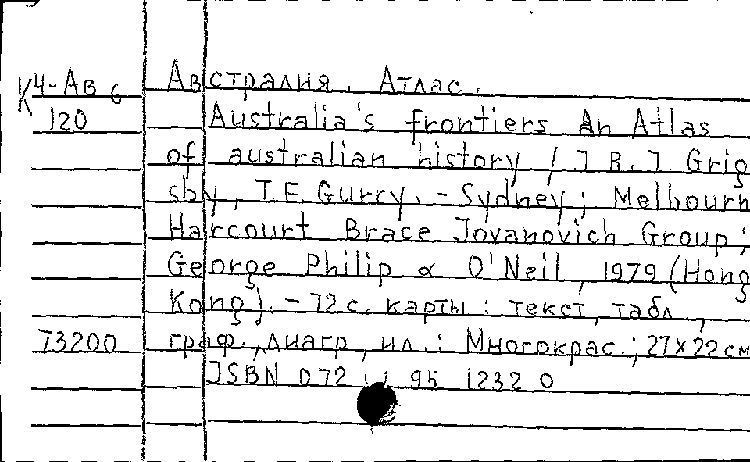 К 4-Ав 6 Австралия. Атлас.
120 Australia's frontiers An Atlas
of australian history / J R. J Grig
sby, T.E. Gurry. - Sydney; Melbourn
Harcourt Brace Jovanovich Group;
George Philip & O'Neil, 1979 (Hong
Kong). - 72 с. карты : текст, табл,
73200 граф., диагр, ил.: Многокрас.; 27x22 см
ISBN 072 95 1232 0